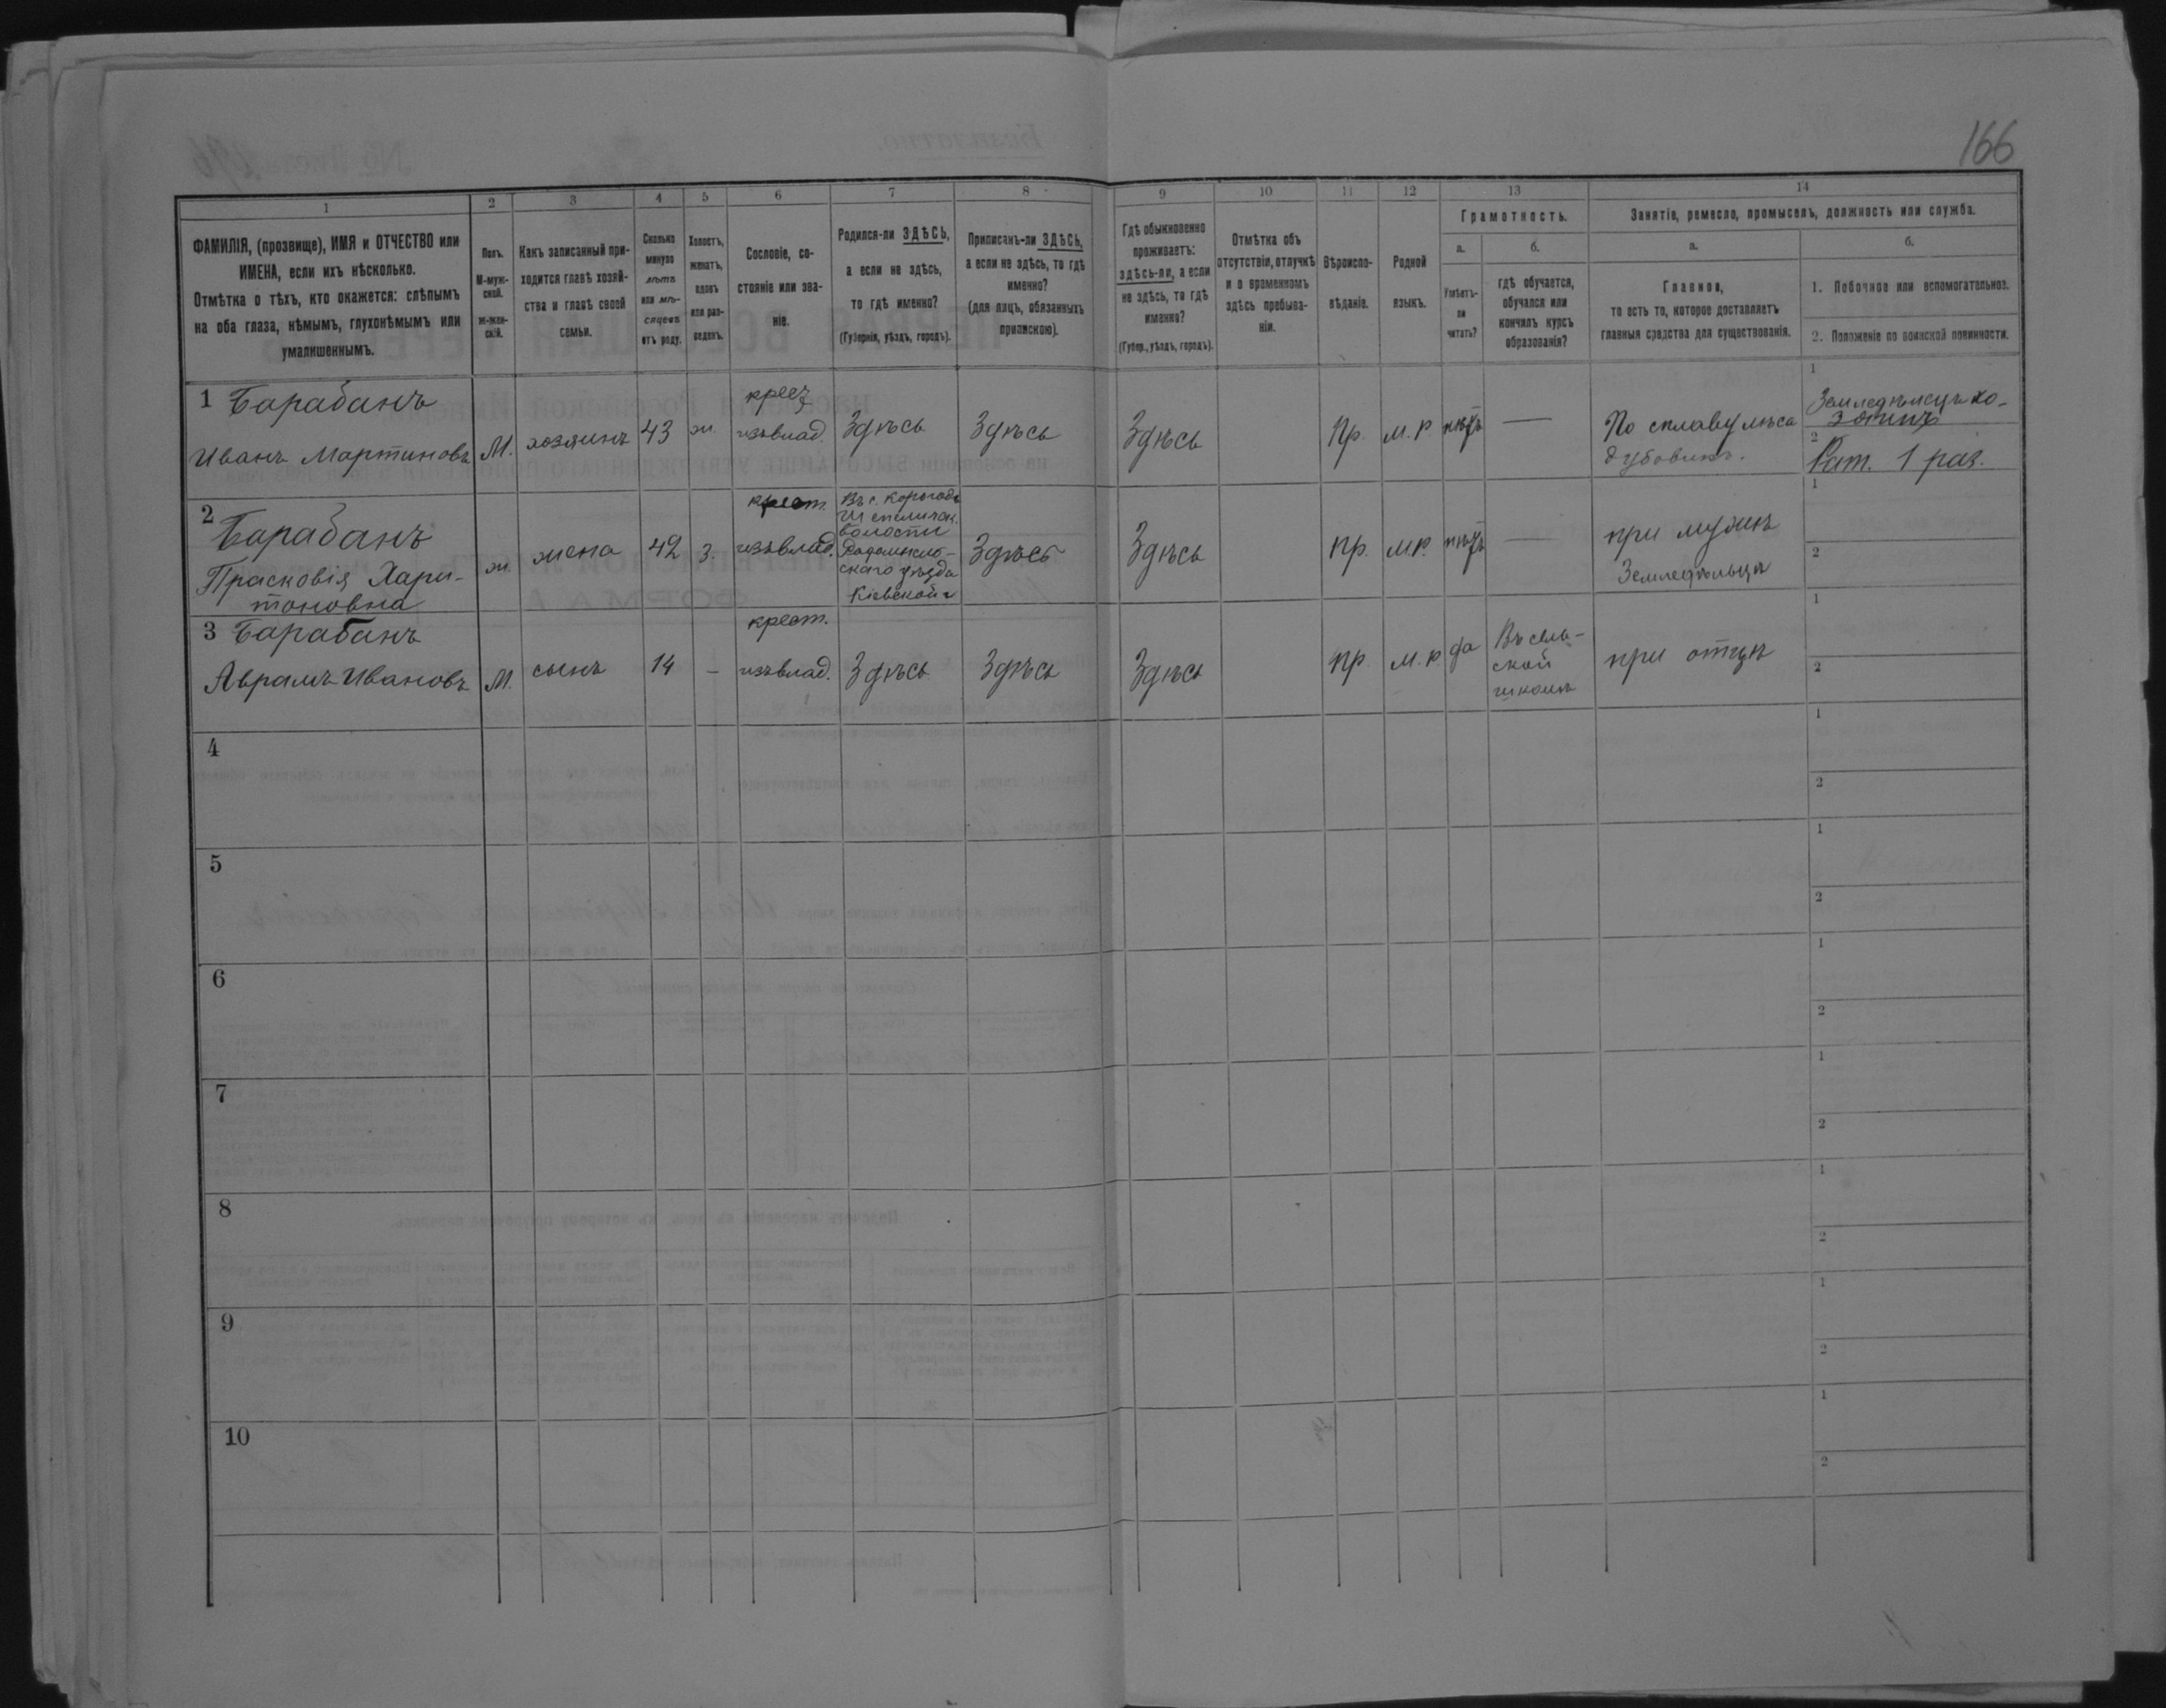 166
1
2
3
4
5
6
7
8
9
10
11
12
13
14
ФАМИЛІЯ, (прозвище), ИМЯ и ОТЧЕСТВО или
ИМЕНА, если ихъ нѣсколько.
Отмѣтка о тѣхъ, кто окажется: слѣпымъ
на оба глаза, нѣмымъ, глухонѣмымъ или
умалишеннымъ.
Полъ.
М-муж-
ской.
ж-жен-
скій.
Какъ записанный при-
ходится главѣ хозяй-
ства и главѣ своей
семьи.
Сколько
минуло
лѣтъ
или мѣ-
сяцевъ
отъ роду.
Холостъ,
женатъ,
вдовъ
или раз-
веденъ.
Сословіе, со-
стояніе или зва-
ніе.
Родился-ли ЗДѢСЬ,
а если не здѣсь,
то гдѣ именно?
(Губернія, уѣздъ, городъ).
Приписанъ-ли ЗДѢСЬ,
а если не здѣсь, то гдѣ
именно?
(для лицъ, обязанныхъ
припискою).
Гдѣ обыкновенно
проживаетъ:
здѣсь-ли, а если
не здѣсь, то гдѣ
именно?
(Губер., уѣздъ, городъ).
Отмѣтка объ
отсутствіи, отлучкѣ
и о временномъ
здѣсь пребыва-
ніи.
Вѣроиспо-
вѣданіе.
Родной
языкъ.
Грамотность.
а.
Умѣетъ-
ли
читать?
б.
гдѣ обучается,
обучался или
кончилъ курсъ
образованія?
Занятіе, ремесло, промыселъ, должность или служба.
а.
Главное,
то есть то, которое доставляетъ
главныя средства для существованія.
б.
1. Побочное или вспомогательное.
2. Положеніе по воинской повинности.
1 Барабанъ
Иванъ Мартиновъ
М.
хозяинъ
43
ж.
изъ влад.
Здѣсь
Здѣсь
Здѣсь
Пр.
м. р.
нѣтъ
—
По сплаву лѣса
1
Земледѣлецъ хо-
2
Рат. 1 раз.
2
Барабанъ
Прасковія Хари-
тоновна
ж.
жена
42
З.
крест.
изъ влад.
Въ с. Корогодѣ
волости
скаго уѣзда
Кіевской г
Здѣсь
Здѣсь
пр.
м.р.
нѣтъ
—
при мужѣ
Земледѣльцѣ
1
2
3 Барабанъ
Аврамъ Ивановъ
М.
сынъ
14
—
крест.
изъ влад.
Здѣсь
Здѣсь
Здѣсь
пр
м. р.
да
Въ сель-
ской
школѣ
при отцѣ
1
2
4
1
2
5
1
2
6
1
2
7
1
2
8
1
2
9
1
2
10
1
2